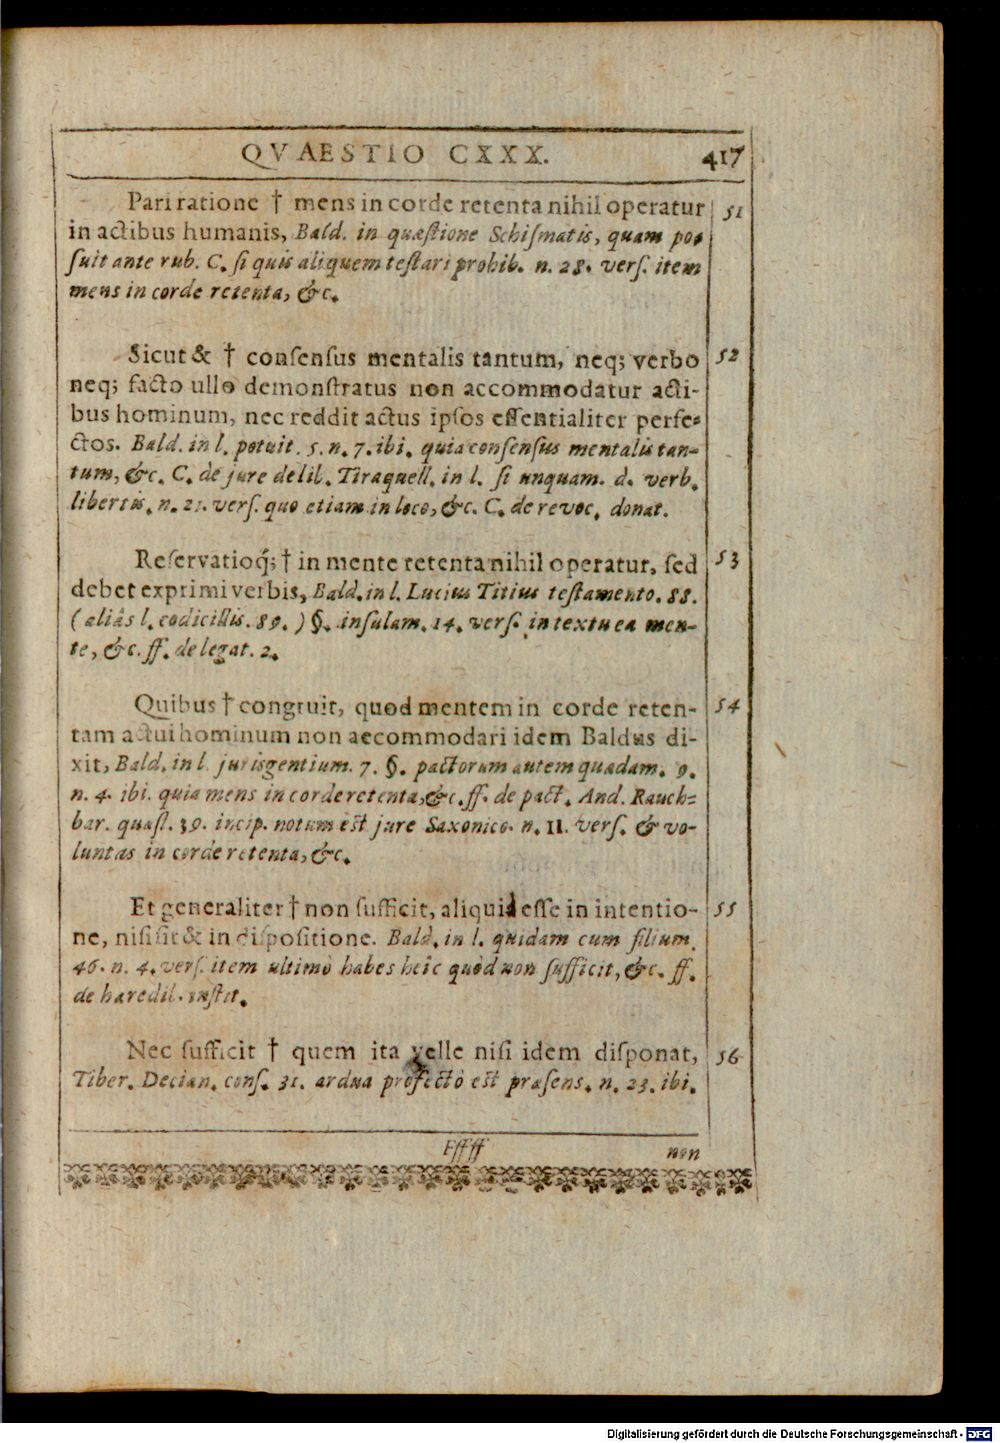 QVAESTIO CXXX. 417
Pari ratione † mens in corde retenta nihil operatur 51
in actibus humanis, Bald. in quæstione Schiſmatis, quam po-
ſuit ante rub. C. ſi quis aliquem teſtari prohib. n. 28. verſ. item
mens in corde retenta, &c.
Sicut & † conſenſus mentalis tantum, neq; verbo 52
neq; facto ullo demonſtratus non accommodatur acti-
bus hominum, nec reddit actus ipſos eſſentialiter perfe-
ctos. Bald. in l. potuit. 5. n. 7. ibi. quia conſenſus mentalis tan-
tum, &c. C. de jure delib. Tiraquell. in l. ſi unquam. d. verb.
libertis. n. 21. verſ. quo etiam in loco, &c. C. de revoc. donat.
Reſervatioq́; † in mente retenta nihil operatur, ſed 53
debet exprimi verbis, Bald. in l. Lucius Titius teſtamento. 88.
(aliàs l. codicillis. 89.) §. inſulam. 14. verſ. in textu ea men-
te, &c. ff. de legat. 2.
Quibus † congruit, quod mentem in corde reten- 54
tam actui hominum non accommodari idem Baldus di-
xit, Bald. in l. jurisgentium. 7. §. pactorum autem quadam. 9.
n. 4. ibi. quia mens in corde retenta, &c. ff. de pact. And. Rauch-
bar. quæſt. 39. incip. notum est jure Saxonico. n. 11. verſ. & vo-
luntas in corde retenta, &c.
Et generaliter † non ſufficit, aliquid eſſe in intentio- 55
ne, niſi ſit & in diſpoſitione. Bald. in l. quidam cum filium.
46. n. 4. verſ. item ultimò habes heîc quòd non ſufficit, &c. ff.
de hæredib. inſtit.
Nec ſufficit † quem ita velle niſi idem diſponat, 56
Tiber. Decian. conſ. 31. ardua profectò est præſens. n. 23. ibi.
Fffff non
Digitalisierung gefördert durch die Deutsche Forschungsgemeinschaft - DFG